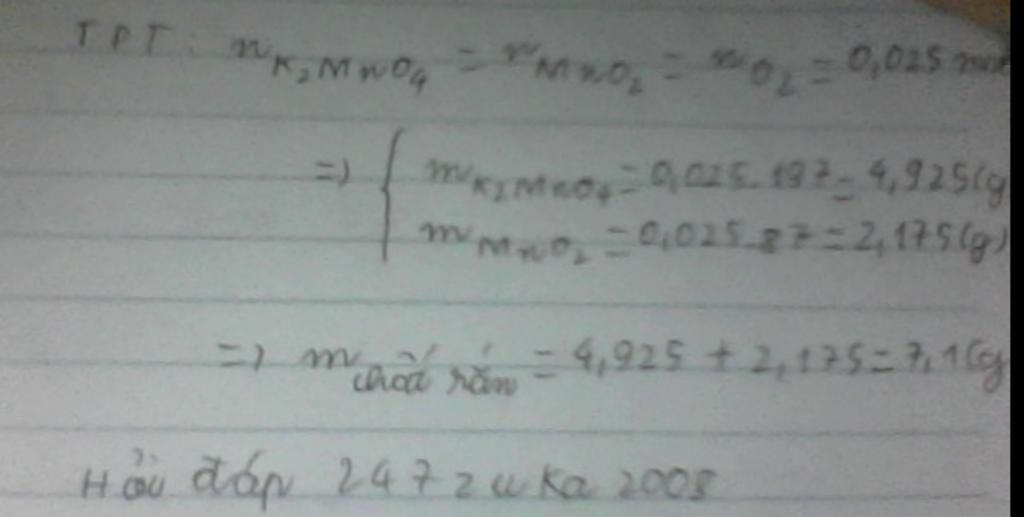 TPT: nK₂MnO₄ = nMnO₂ = nO₂ = 0,025 mol
=> { mK₂MnO₄ = 0,025.197 = 4,925(g
mMnO₂ = 0,025.87 = 2,175(g)
=> m chất rắn = 4,925 + 2,175 = 7,1(g
Hỏi đáp 247 zuka 2008